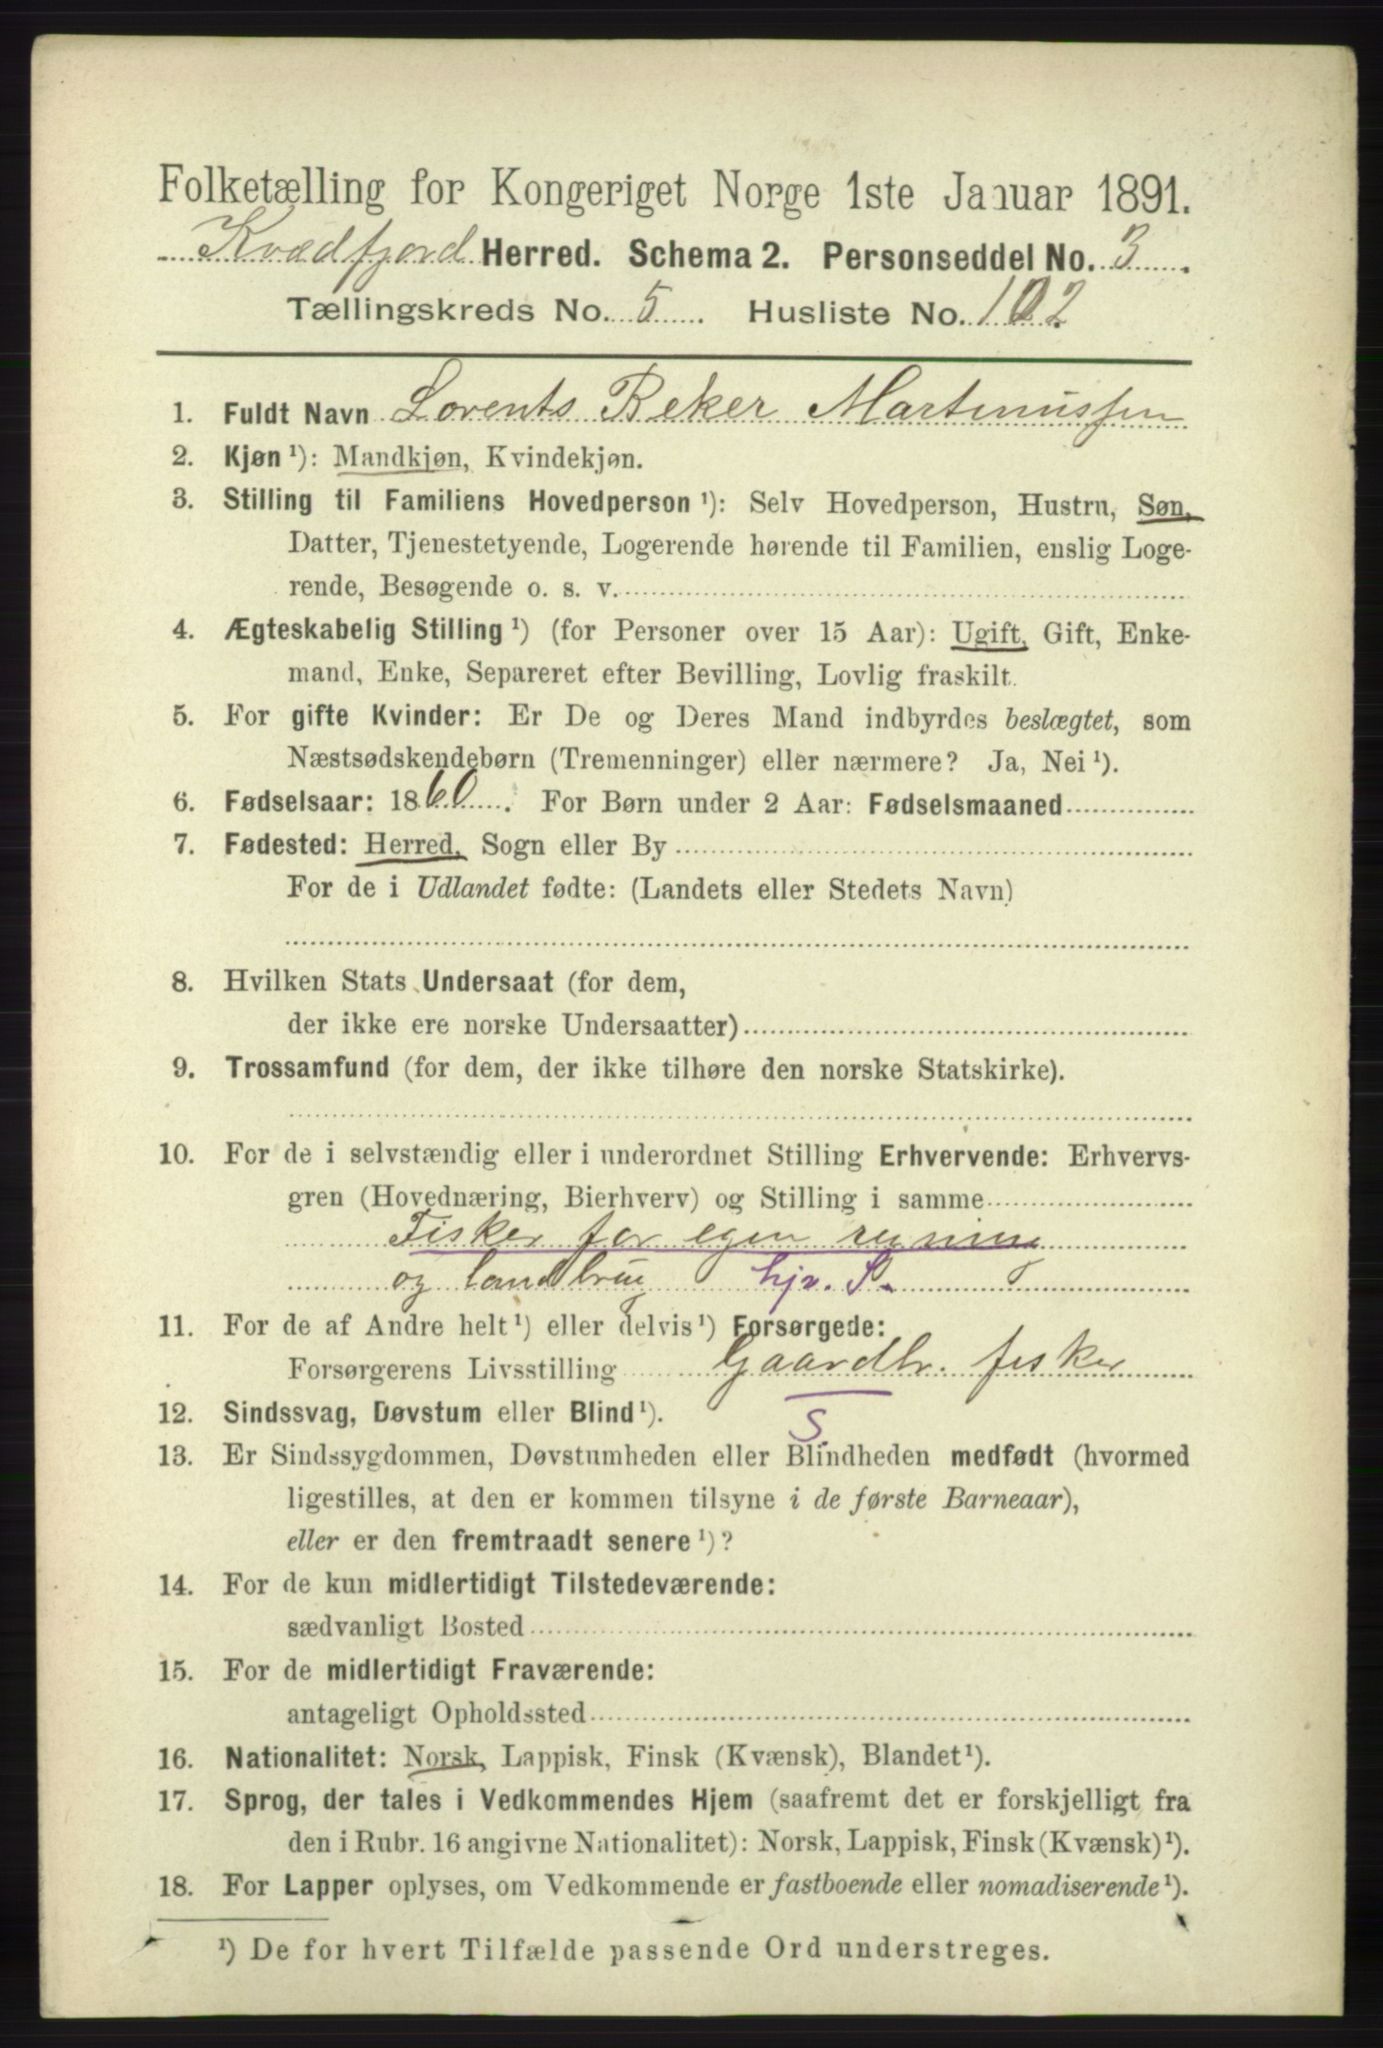 Folketælling for Kongeriget Norge 1ste Januar 1891.
Kvædfjord Herred. Schema 2. Personseddel No. 3
Tællingskreds No. 5 Husliste No. 102
1. Fuldt Navn Lorents Beker Martinussen
2. Kjøn ¹): Mandkjøn, Kvindekjøn.
3. Stilling til Familiens Hovedperson ¹): Selv Hovedperson, Hustru, Søn,
Datter, Tjenestetyende, Logerende hørende til Familien, enslig Loge-
rende, Besøgende o. s. v.
4. Ægteskabelig Stilling ¹) (for Personer over 15 Aar): Ugift, Gift, Enke-
mand, Enke, Separeret efter Bevilling, Lovlig fraskilt.
5. For gifte Kvinder: Er De og Deres Mand indbyrdes beslægtet, som
Næstsødskendebørn (Tremenninger) eller nærmere? Ja, Nei ¹).
6. Fødselsaar: 1860. For Børn under 2 Aar: Fødselsmaaned
7. Fødested: Herred, Sogn eller By
For de i Udlandet fødte: (Landets eller Stedets Navn)
8. Hvilken Stats Undersaat (for dem,
der ikke ere norske Undersaatter)
9. Trossamfund (for dem, der ikke tilhøre den norske Statskirke).
10. For de i selvstændig eller i underordnet Stilling Erhvervende: Erhvervs-
gren (Hovednæring, Bierhverv) og Stilling i samme
Fisker for egen regning
og landbrug hjv. S.
11. For de af Andre helt ¹) eller delvis ¹) Forsørgede:
Forsørgerens Livsstilling Gaardbr. fisker
S.
12. Sindssvag, Døvstum eller Blind ¹).
13. Er Sindssygdommen, Døvstumheden eller Blindheden medfødt (hvormed
ligestilles, at den er kommen tilsyne i de første Barneaar),
eller er den fremtraadt senere ¹)?
14. For de kun midlertidigt Tilstedeværende:
sædvanligt Bosted
15. For de midlertidigt Fraværende:
antageligt Opholdssted
16. Nationalitet: Norsk, Lappisk, Finsk (Kvænsk), Blandet ¹).
17. Sprog, der tales i Vedkommendes Hjem (saafremt det er forskjelligt fra
den i Rubr. 16 angivne Nationalitet): Norsk, Lappisk, Finsk (Kvænsk) ¹).
18. For Lapper oplyses, om Vedkommende er fastboende eller nomadiserende ¹).
¹) De for hvert Tilfælde passende Ord understreges.